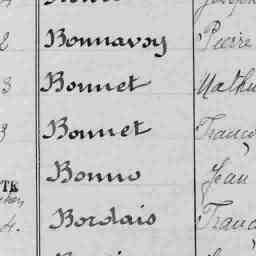 2 Bonnavoy Pierre
3 Bonnet Mathu
3 Bonnet Franço
Bonno Jean
4. Bordais Franç